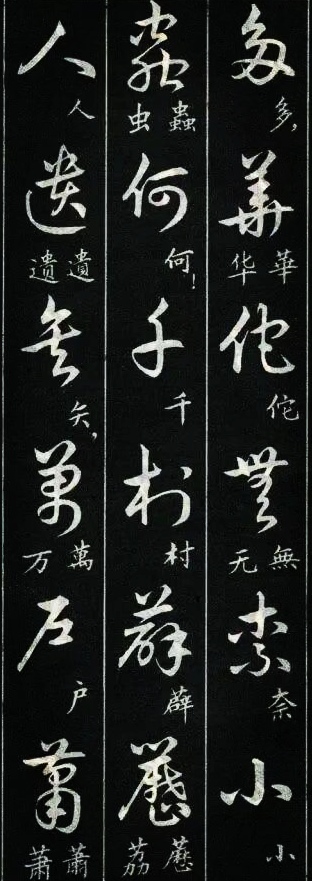 多華佗無奈小
多,
華华
佗
無无
奈
小
蟲何千村薜荔
蟲虫
何!
千
村
薜
荔
人遺矢萬户蕭
人
遺遗
矢,
萬万
户
蕭萧